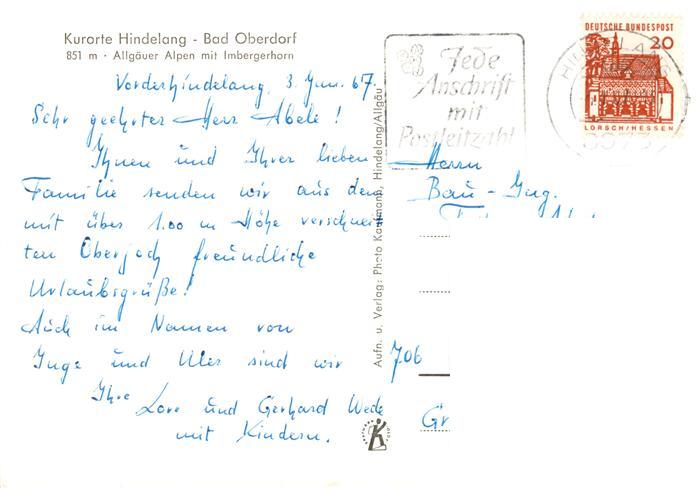 Kurorte Hindelang - Bad Oberdorf
851 m · Allgäuer Alpen mit Imbergerhorn
Vorderhindelang, 3. Jun. 67.
Sehr geehrter Herr Abele!
Ihnen und Ihrer lieben
Familie senden wir aus dem
mit über 1.00 m Höhe verschnei
ten Oberjoch freundliche
Urlaubsgrüße!
Auch im Namen von
Inge und Uler sind wir
Ihre
Lore und Gerhard Wede
mit Kindern.
Aufn. u. Verlag: Photo Kaufmann, Hindelang/Allgäu
Jede
Anschrift
mit
Postleitzahl
DEUTSCHE BUNDESPOST
20
LORSCH/HESSEN
Herrn
Bau-Ing.
706
Gr